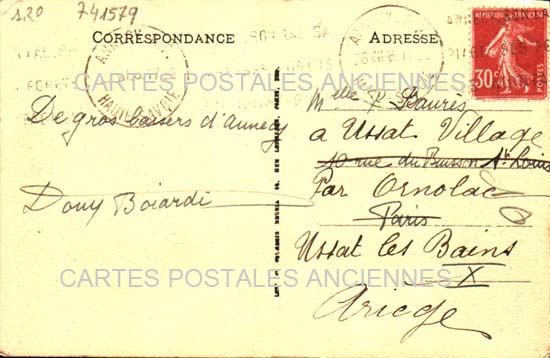 1.20 741579
CORRESPONDANCE
ADRESSE
REPUBLIQUE FRANCAISE
30c
POSTES
De gros baisers d'Annecy
Dony Boiardi
Melle P. Baurès
a Ussat Village
10 rue du Buisson St Louis
Par Ornolac
Paris
Ussat les Bains
X
Ariège
CARTES POSTALES ANCIENNES
CARTES POSTALES ANCIENNES